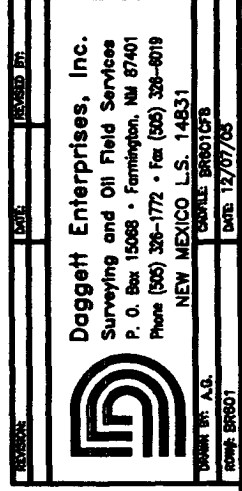 REVISION:
DATE:
REVISED BY:
Daggett Enterprises, Inc.
Surveying and Oil Field Services
P. O. Box 15068 • Farmington, NM 87401
Phone (505) 326-1772 • Fax (505) 326-6019
NEW MEXICO L.S. 14831
DRAWN BY: A.G.
CADFILE: BR601CFB
ROW#: BR601
DATE: 12/07/05